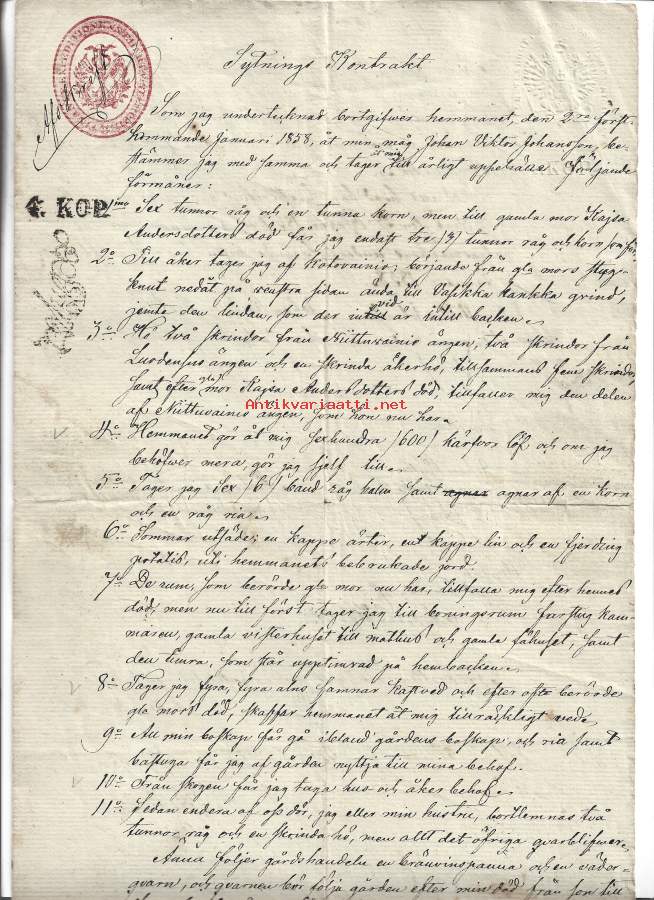 Sytnings Kontrakt
Afskrift
Som jag undertecknad bortgifwer hemmanet, den 2:ra först-
kommande Januari 1858, åt min måg Johan Viktor Johansson, be-
stämmer jag med samma och tager åt mig till årligt uppehälle följande
förmåner:
4. KOP.
1mo Sex tunnor råg och en tunna korn, men till gamla mor Kajsa
Andersdotters död får jag endast tre /3/ tunnor råg och korn som för
2o Till åker tages jag af Kotovainio, börjande från gla mors styg-
knut nedåt på venstra sidan ända till Vasikka hankka grind,
jemte den lindan, som der vid är intill backen.
3o Hö två skrindor från Niittuwainio ängen, två skrindor från
Luodensuo ängen och en skrinda åkerhö, tillsammans fem skrindor,
samt efter gla mor Kajsa Andersdotters död, tillfaller mig den delen
af Niittuwainio ängen, som hon nu har.
Antikvariaatti.net
4o Hemmanet gör åt mig sexhundra /600/ kärfvor löf och om jag
behöfwer mera, gör jag sjelf till.
5o Tager jag sex /6/ band råg halm samt agnar af en korn
och en råg ria.
6o Sommar utsäde; en kappe ärter, ett kappe lin och en fjerding
potatis, uti hemmanets bebrukade jord.
7o De rum, som berörde gla mor nu har, tillfalla mig efter hennes
död, men nu till först tager jag till boningsrum farstug kam-
maren, gamla visterhuset till mathus och gamla fähuset, samt
den timra, som står upptimrad på hembacken.
8o Tager jag fyra, fyra alns famnar kastved och efter ofta berörde
gla mors död, skaffar hemmanet åt mig tillräckligt wed.
9o All min boskap får gå ibland gårdens boskap, och ria samt
bastuga får jag af gården nyttja till mina behof.
10o Från skogen får jag taga hus och åker behof.
11o Sedan endera af oss dör, jag eller min hustru, bortlemnas två
tunnor råg och en skrinda hö, men allt det öfriga qvarblifwer.
Ännu följer gårdshandeln en bränvinspanna och en väder-
qvarn, och qvarnen bör följa gården efter min död från son till